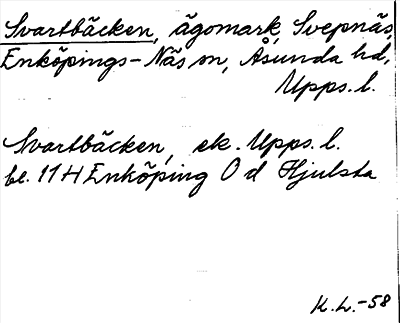 Svartbäcken, ägomark, Svepnäs,
Enköpings-Näs sn, Åsunda hd,
Upps. l.
Svartbäcken, ek. Upps. l.
bl. 11 H Enköping O d Hjulsta
K.L.-58